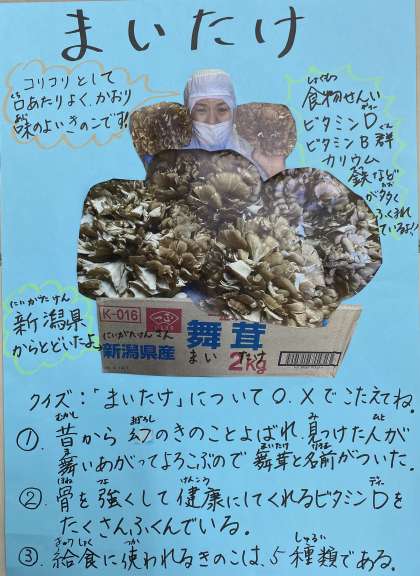 まいたけ
コリコリとして
舌あたりよく、かおり
味のよいきのこです!!
食物せんい
ビタミンD
ビタミンB群
カリウム
鉄など
が多く
ふくまれ
ているよ!!
にいがたけん
新潟県
からとどいたよ
K-016
にいがたけんさん
新潟県産
舞茸
まいたけ
2kg
クイズ:「まいたけ」について○、×でこたえてね
①. 昔から幻のきのことよばれ、見つけた人が
舞いあがってよろこぶので舞茸と名前がついた。
②. 骨を強くして健康にしてくれるビタミンDを
たくさんふくんでいる。
③. 給食に使われるきのこは、5種類である。